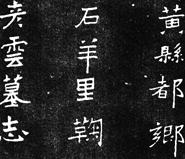 黃縣都鄉
石羊里鞠
彥雲墓志